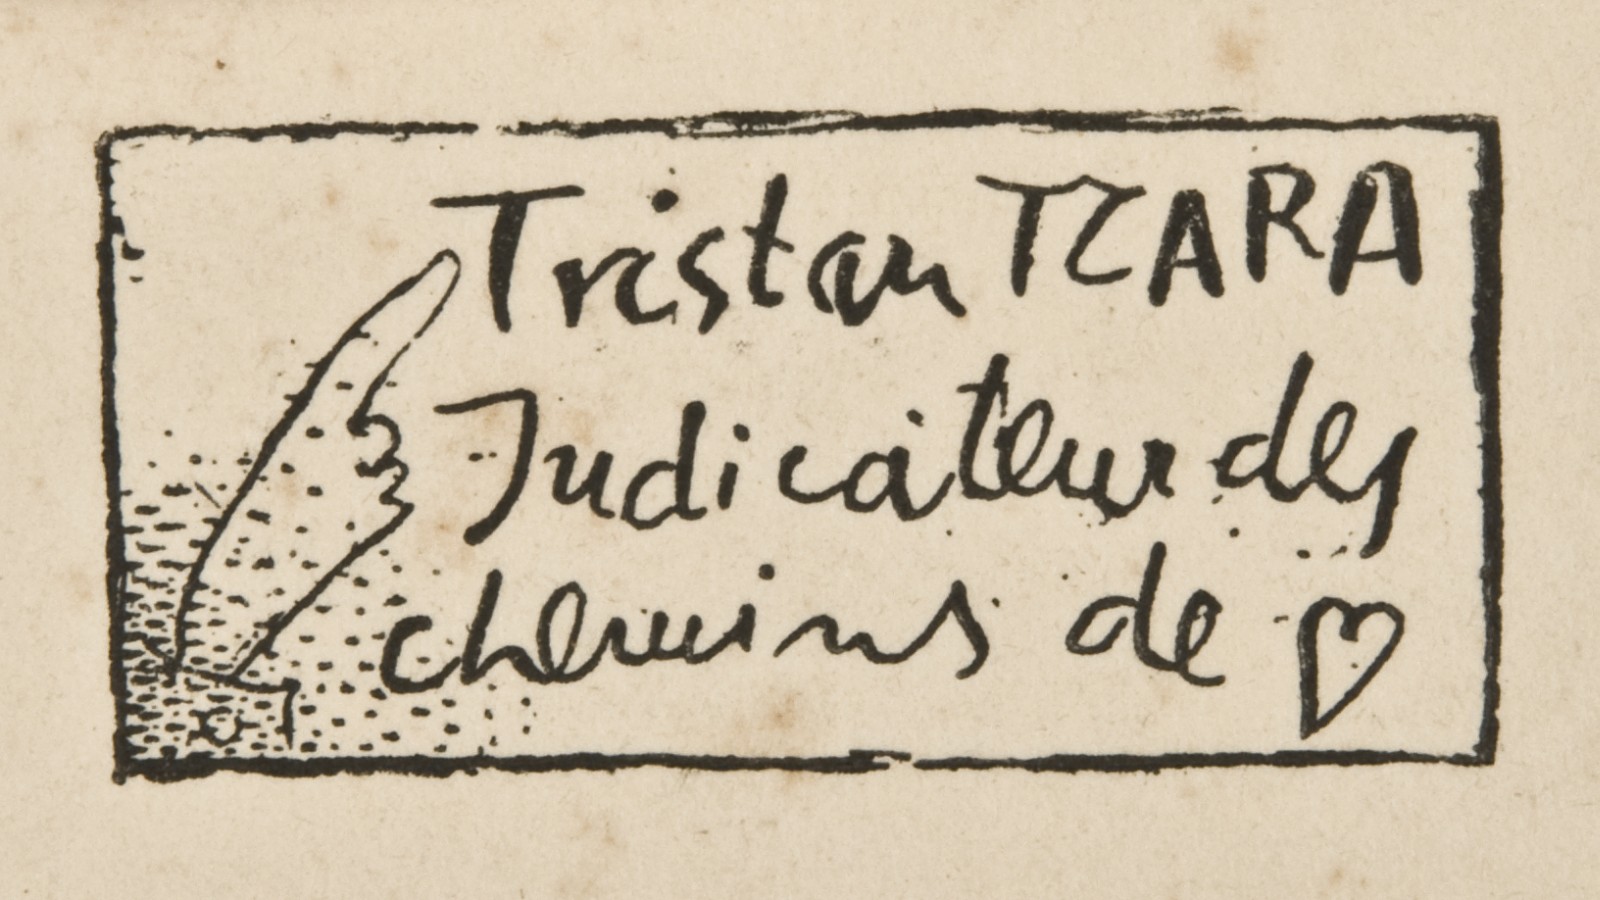 Tristan TZARA
Indicateur des
chemins de ♡